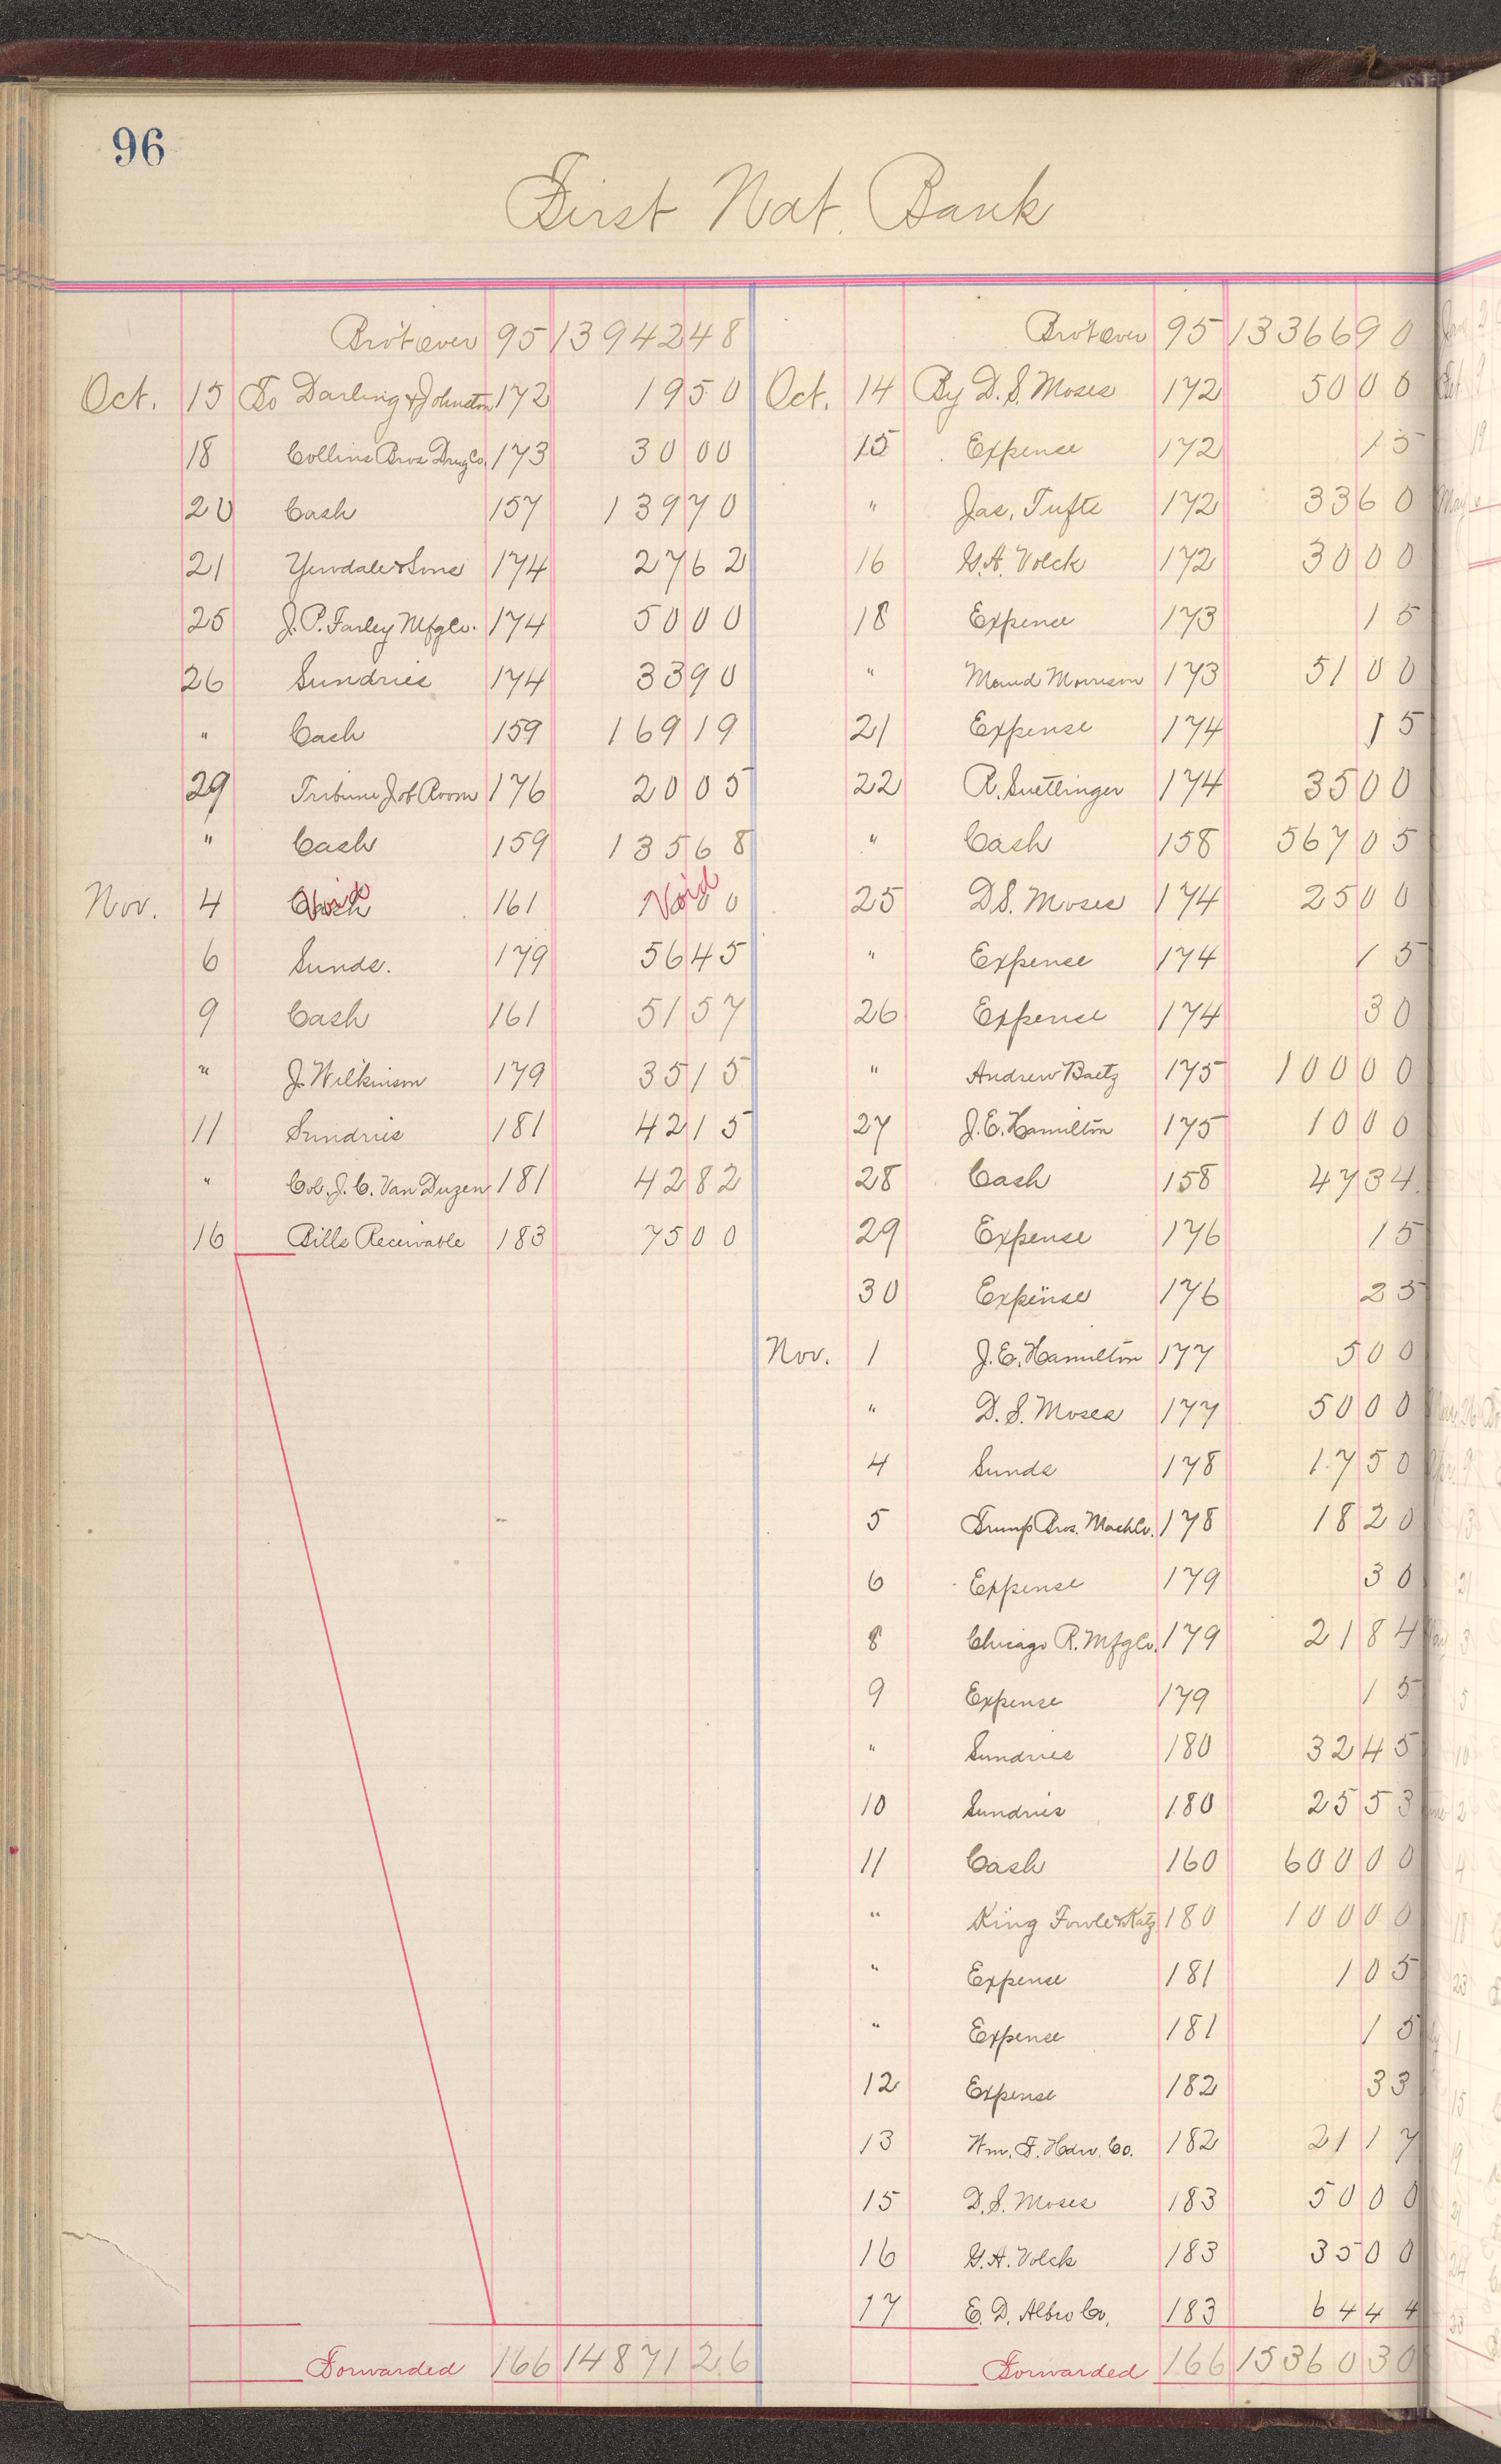 96
First Nat. Bank
Bro't over 95 13942 48
Oct. 15 To Darling & Johnston 172 19 50
18 Collins Bros Drug Co. 173 30 00
20 Cash 157 139 70
21 Yewdale & Sons 174 27 62
25 J. P. Farley Mfg Co. 174 50 00
26 Sundries 174 33 90
" Cash 159 169 19
29 Tribune Job Room 176 20 05
" Cash 159 135 68
Nov. 4 Cash Void 161 Void
6 Sunds. 179 56 45
9 Cash 161 51 57
" J. Wilkinson 179 35 15
11 Sundries 181 42 15
" Col. J. C. Van Duzen 181 42 82
16 Bills Receivable 183 75 00
Forwarded 166 14871 26
Bro't over 95 13366 90
Oct. 14 By D. S. Moses 172 50 00
15 Expense 172 15
" Jas. Tufts 172 33 60
16 G. A. Volck 172 30 00
18 Expense 173 15
" Maud Morrison 173 51 00
21 Expense 174 15
22 R. Suettinger 174 35 00
" Cash 158 567 05
25 D S. Moses 174 25 00
" Expense 174 15
26 Expense 174 30
" Andrew Baetz 175 100 00
27 J. E. Hamilton 175 10 00
28 Cash 158 47 34
29 Expense 176 15
30 Expense 176 25
Nov. 1 J. E. Hamilton 177 5 00
" D. S. Moses 177 50 00
4 Sunds 178 17 50
5 Trump Bros. Mach Co. 178 18 20
6 Expense 179 30
8 Chicago R. Mfg Co. 179 21 84
9 Expense 179 15
" Sundries 180 32 45
10 Sundries 180 25 53
11 Cash 160 600 00
" King Fowle & Katz 180 100 00
" Expense 181 1 05
" Expense 181 15
12 Expense 182 33
13 Wm. F. Hdw. Co. 182 21 17
15 D. S. Moses 183 50 00
16 G. A. Volck 183 35 00
17 E. D. Albro Co. 183 64 44
Forwarded 166 15360 30